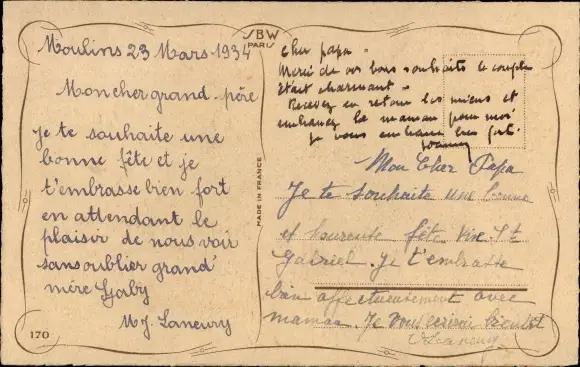 Moulins 23 Mars 1934
Mon cher grand-père
Je te souhaite une
bonne fête et je
t'embrasse bien fort
en attendant le
plaisir de nous voir
sans oublier grand'
mère Gaby
M J. Laneury
170
SBW
PARIS
MADE IN FRANCE
cher papa -
Merci de vos bons souhaits le couplet
était charmant -
Recevez en retour les miens et
embrassez la maman pour moi
je vous embrasse bien fort.
Mon Cher Papa
Je te souhaite une bonne
et heureuse fête Vive St
Gabriel. Je t'embrasse
bien affectueusement avec
maman. Je vous écrirai bientôt